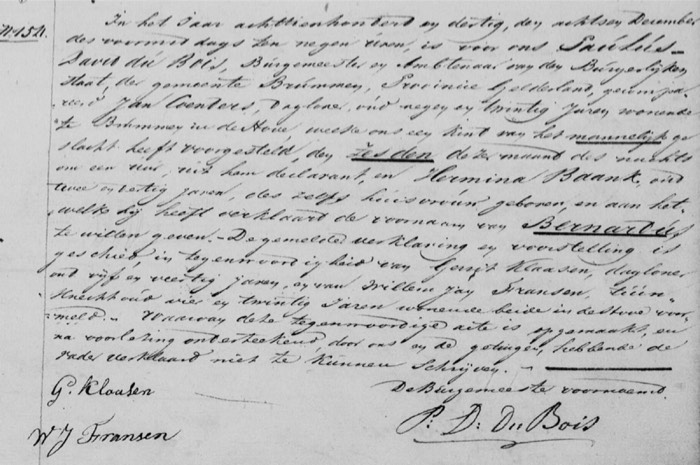 N. 154. In het jaar achttienhonderd en dertig, den achtsen December
des voormiddags ten negen uren, is voor ons Paulus
David du Bois, Burgemeester en Ambtenaar van den Burgerlijken
Staat, der gemeente Brummen, Provincie Gelderland, gecompa-
reerd Jan Coenders, Daglover, oud negen en twintig Jaren wonende
te Brummen in de Hove welke ons een kint van het mannelijk ge
slacht heeft voorgesteld, den zesden dezer maand des nachts
om een uur, uit hem declarant, en Hermina Baank, oud
twee en dertig jaren, des zelfs huisvrouw geboren, en aan het-
welk hij heeft verklaard de voornaam van Bernardus
te willen geven. - De gemelde verklaring en voorstelling is
geschied, in tegenwoordigheid van Gerrit Klaasen, daglover
oud vijf en veertig jaren, en van Willem Jan Fransen, tuin-
Knecht oud vier en twintig Jaren wonende beide in de Hove voor-
meld. - Waarvan deze tegenwoordige akte is opgemaakt, en
na voorlezing onderteekend, door ons en de getuigen, hebbende de
vader verklaard niet te kunnen Schrijven.
De Burgemeester voornoemd.
G. Klaasen
P: D: Du Bois
W J Fransen